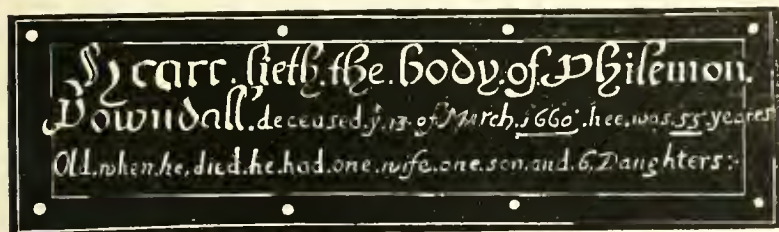 Hyeare.lieth.the.body.of.Philemon.
Powndall.deceased.y.13.of.March.1660.hee.was.55.yeares
Old.when.he,died.he.had.one.wife.one.son.and.6.Daughters:-